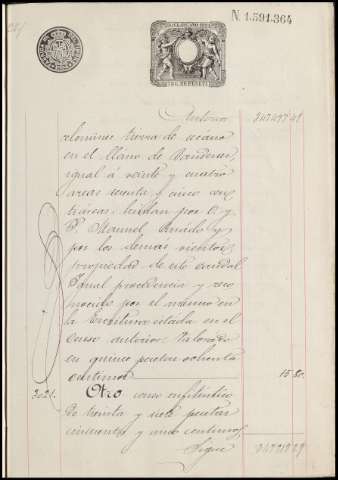 N. 1.591.364
Anterior 747497'41
tierra de secano
en el llano de
igual á veinte y cuatro
areas y cinco cen
tiáreas: lindan por O. y
P. Manuel y
por los demas vientos
propiedad de este caudal
Igual procedencia y reco
nocido por el mismo en
la Escritura citada en el
censo anterior. Valorado
en quince pesetas ochenta
centimos 15 80
3021. Otro censo enfitéutico
de treinta y siete pesetas
cincuenta y un centimos,
Sigue